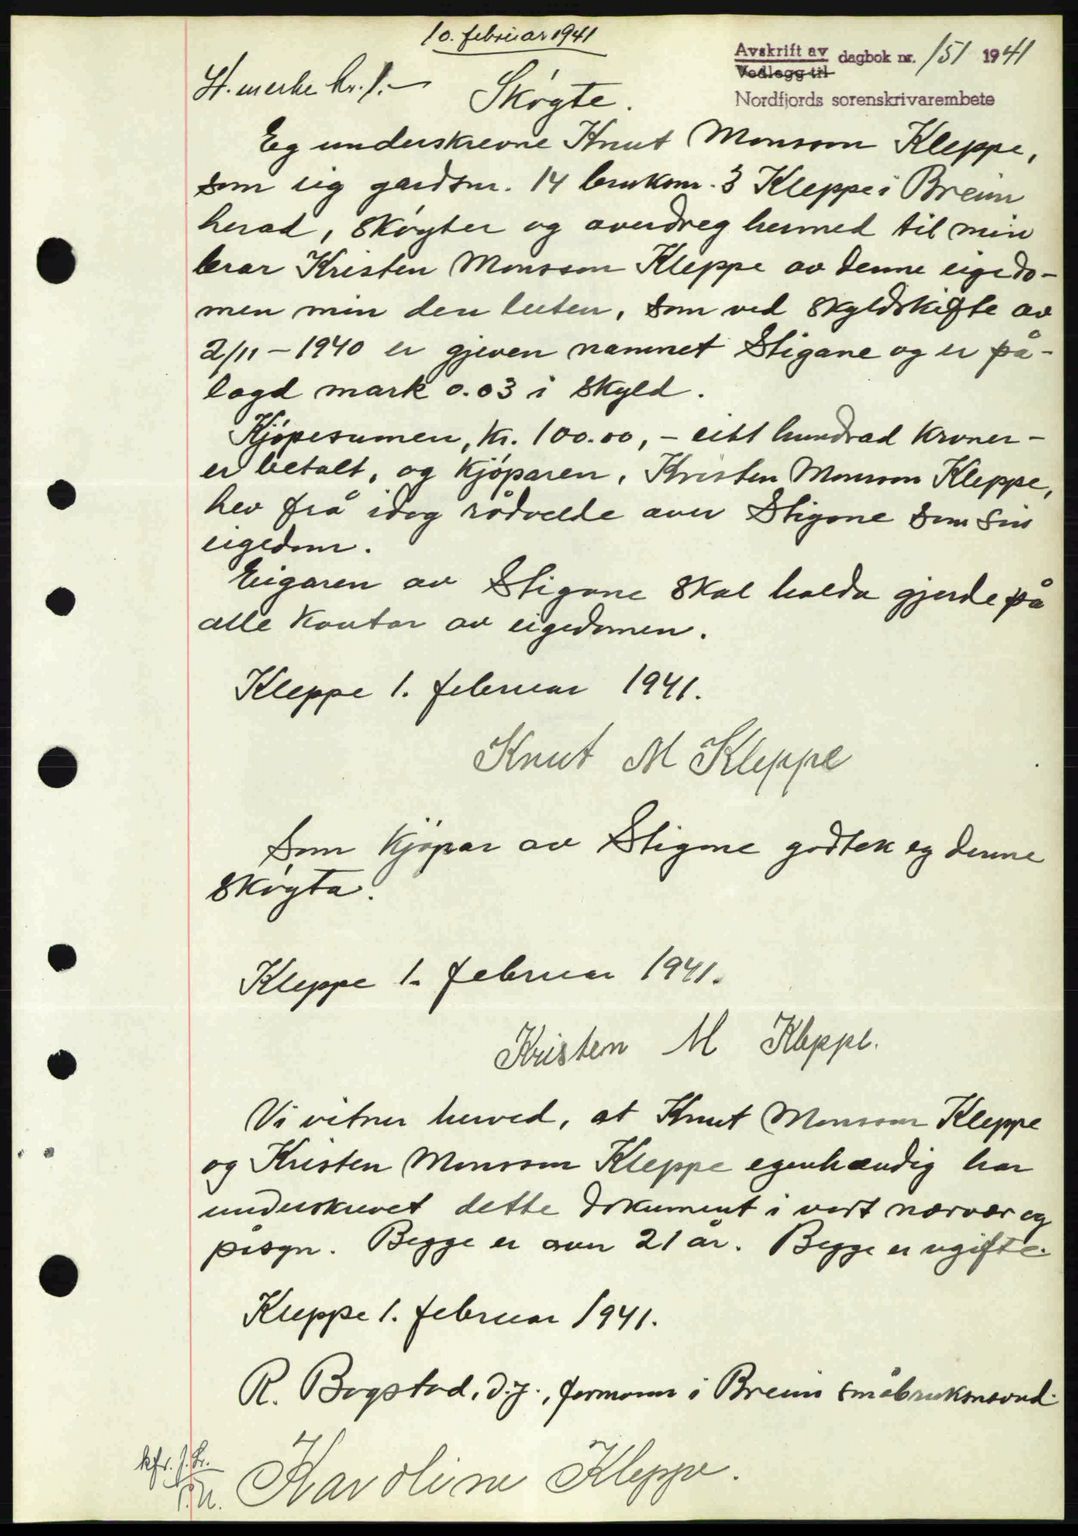 10. februar 1941
Avskrift av dagbok nr. 151 1941
Vedlegg til
Nordfjords sorenskrivarembete
St. merke kr. 1.-
Skøgte.
Eg underskrevne Knut Monsson Kleppe,
som eig gardsnr. 14 bruksnr. 3 Kleppe i Breim
herad, skøyter og averdreg hermed til min
bror Kristen Monsson Kleppe av denne eigedo-
men min den luten, som ved skyldskifte av
2/11-1940 er gjeven namnet Stigane og er på-
lagd mark 0.03 i skyld.
Kjøpesumen, kr. 100.00, - eitt hundrad kroner -
er betalt, og kjøparen, Kristen Monsson Kleppe,
hev frå idag rådvelde over Stigane som sin
eigedom.
Eigaren av Stigane skal halda gjerde på
alle kantar av eigedomen.
Kleppe 1. februar 1941.
Knut M Kleppe
Som kjøpar av Stigane godtek eg denne
skøyta.
Kleppe 1. februar 1941.
Kristen M Kleppe.
Vi vitner herved, at Knut Monsson Kleppe
og Kristen Monsson Kleppe egenhændig har
underskrevet dette dokument i vort nærvær og
påsyn. Begge er over 21 år. Begge er ugifte.
Kleppe 1. februar 1941.
R. Bogstad, d.y., formann i Breim småbruksnevnd.
Karoline Kleppe.
kfr.